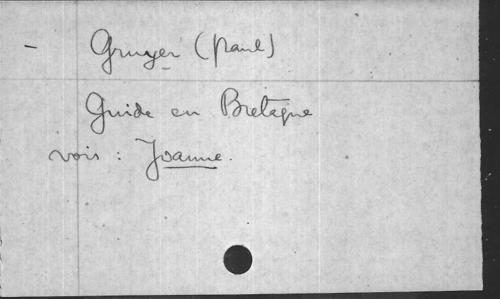 - Gruyer (Paul)
Guide en Bretagne
vois : Joanne.